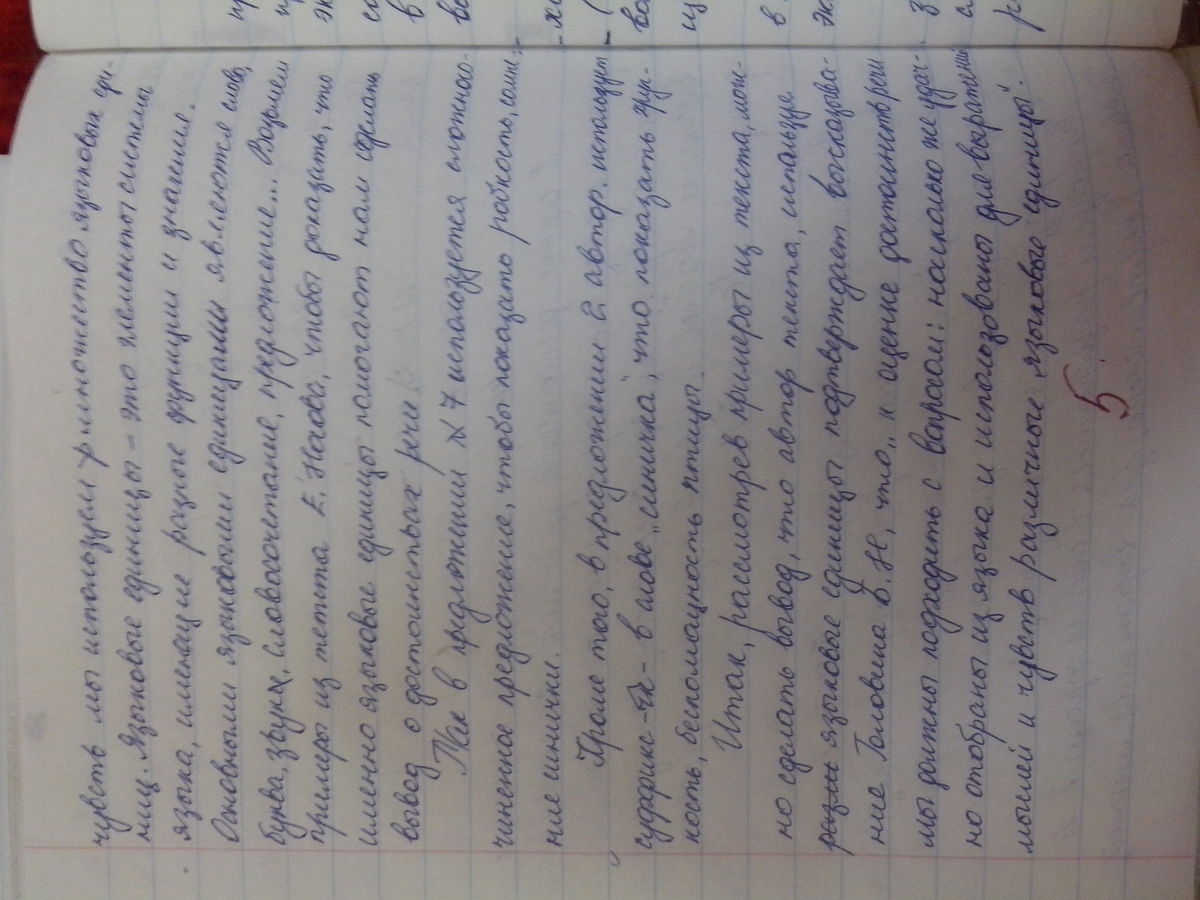 чувств мы используем множество языковых еди-
ниц. Языковые единицы - это элементы системы
языка, имеющие разные функции и значения.
Основными языковыми единицами являются слово,
буква, звуки, словосочетание, предложение... Возьмем
примеры из текста Е. Носова, чтобы доказать, что
именно языковые единицы помогают нам сделать
вывод о достоинствах речи.
Так в предложении N 7 используется сложнопо-
чиненное предложение, чтобы показать робость, сомне-
ние синички.
Кроме того, в предложении 2 автор использует
суффикс -ик- в слове „синичка", что показать хруп-
кость, беспомощность птицы.
Итак, рассмотрев примеры из текста, мож-
но сделать вывод, что автор текста, используя
разли языковые единицы подтверждает высказыва-
ние Головина Б. Н, что „ к оценке достоинств речи
мы должны подходить с вопросом: насколько же удач-
но отобраны из языка и использованы для выражений
мыслей и чувств различные языковые единицы".
5